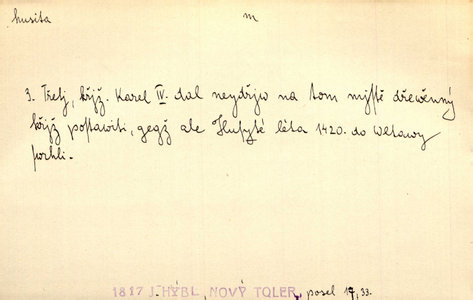 husita m
3. Třetj, křjž. Karel IV. dal neydřjw na tom mjstě dřewěnný
křjž postawiti, gegž ale Husyté léta 1420. do Wltawy
swrhli.
1817 J. HÝBL, NOVÝ TOLER, posel 17, 33.